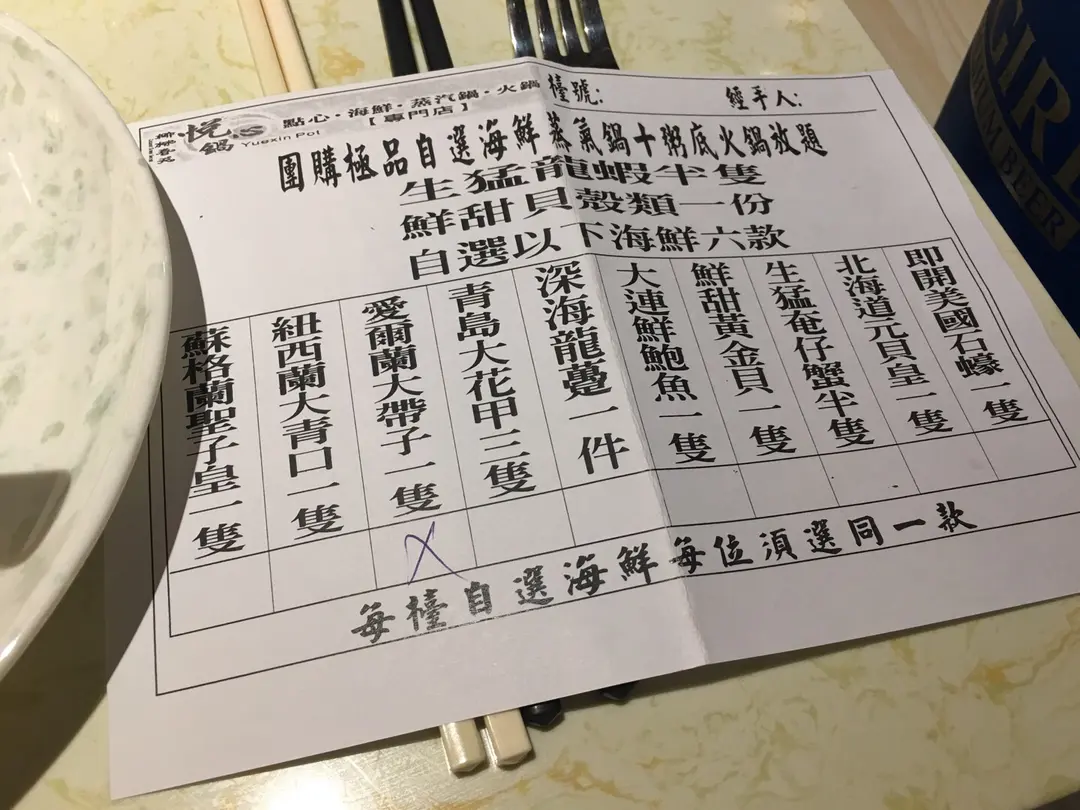 點心·海鮮·蒸汽鍋·火鍋
【專門店】
悅鍋
Yuexin Pot
檯號:
經手人:
團購極品自選海鮮蒸氣鍋十粥底火鍋放題
生猛龍蝦半隻
鮮甜貝殼類一份
自選以下海鮮六款
即開美國石蠔一隻
北海道元貝皇一隻
生猛奄仔蟹半隻
鮮甜黃金貝一隻
大連鮮鮑魚一隻
深海龍躉一件
青島大花甲三隻
愛爾蘭大帶子一隻
紐西蘭大青口一隻
蘇格蘭聖子皇一隻
X
每檯自選海鮮每位須選同一款
GIRL
BEER